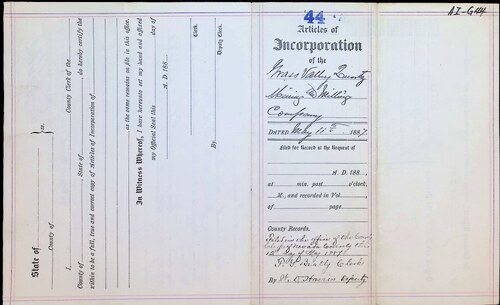 State of
ss.
County of
I, County Clerk of the
County of , State of , do hereby certify the
within to be a full, true and correct copy of Articles of Incorporation of
as the same remains on file in this office.
In Witness Whereof, I have hereunto set my hand and affixed
my Official Seal this day of
A. D. 188 .
Clerk.
By Deputy Clerk.
44
Articles of
Incorporation
of the
Grass Valley Quartz
Mining & Milling
Company
DATED May 11th 1887.
Filed for Record at the Request of
A. D. 188 ,
at min. past o'clock,
M., and recorded in Vol.
of page
County Records.
Filed in the office of the County
Clerk of Nevada County this
12th day of May 1887
Clerk
By Deputy
AI-644